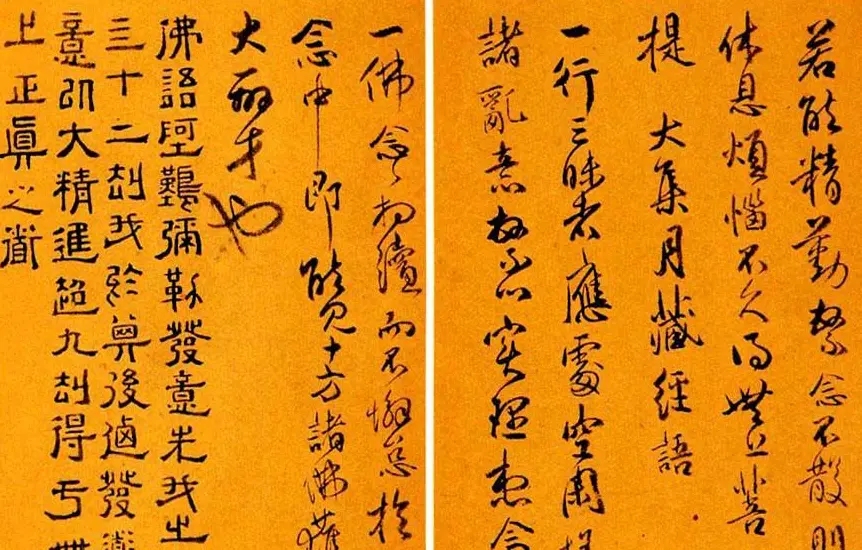 若能精勤繫念不散則
休息煩惱不久得無上菩
提 大集月藏經語
一行三昧者應處空閑捨
諸亂意繫心實理想念
一佛念念相續而不懈怠於
念中即能見十方諸佛獲
大辯才也
佛語阿難彌勒發意先我之
三十二劫我於其後迺發道
意以大精進超九劫得于無
上正真之道